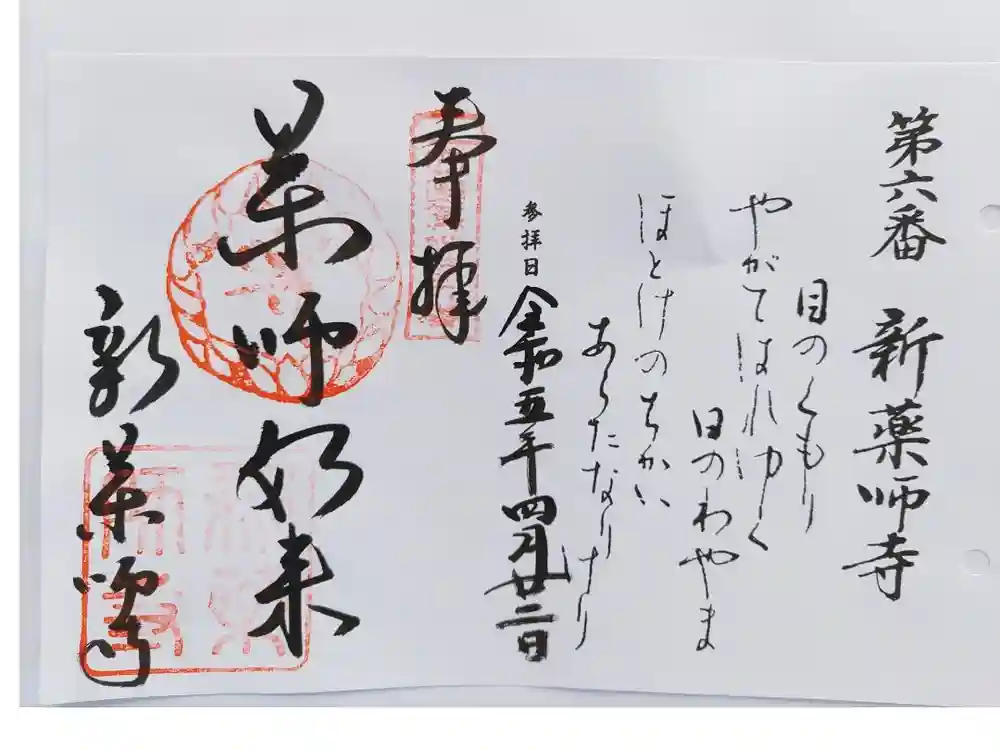 第六番 新薬師寺
目のくもり
やがてはれゆく
日のわやま
ほとけのちかい
あらたなりけり
参拝日 令和五年四月廿二日
奉拝
薬師如来
新薬師寺